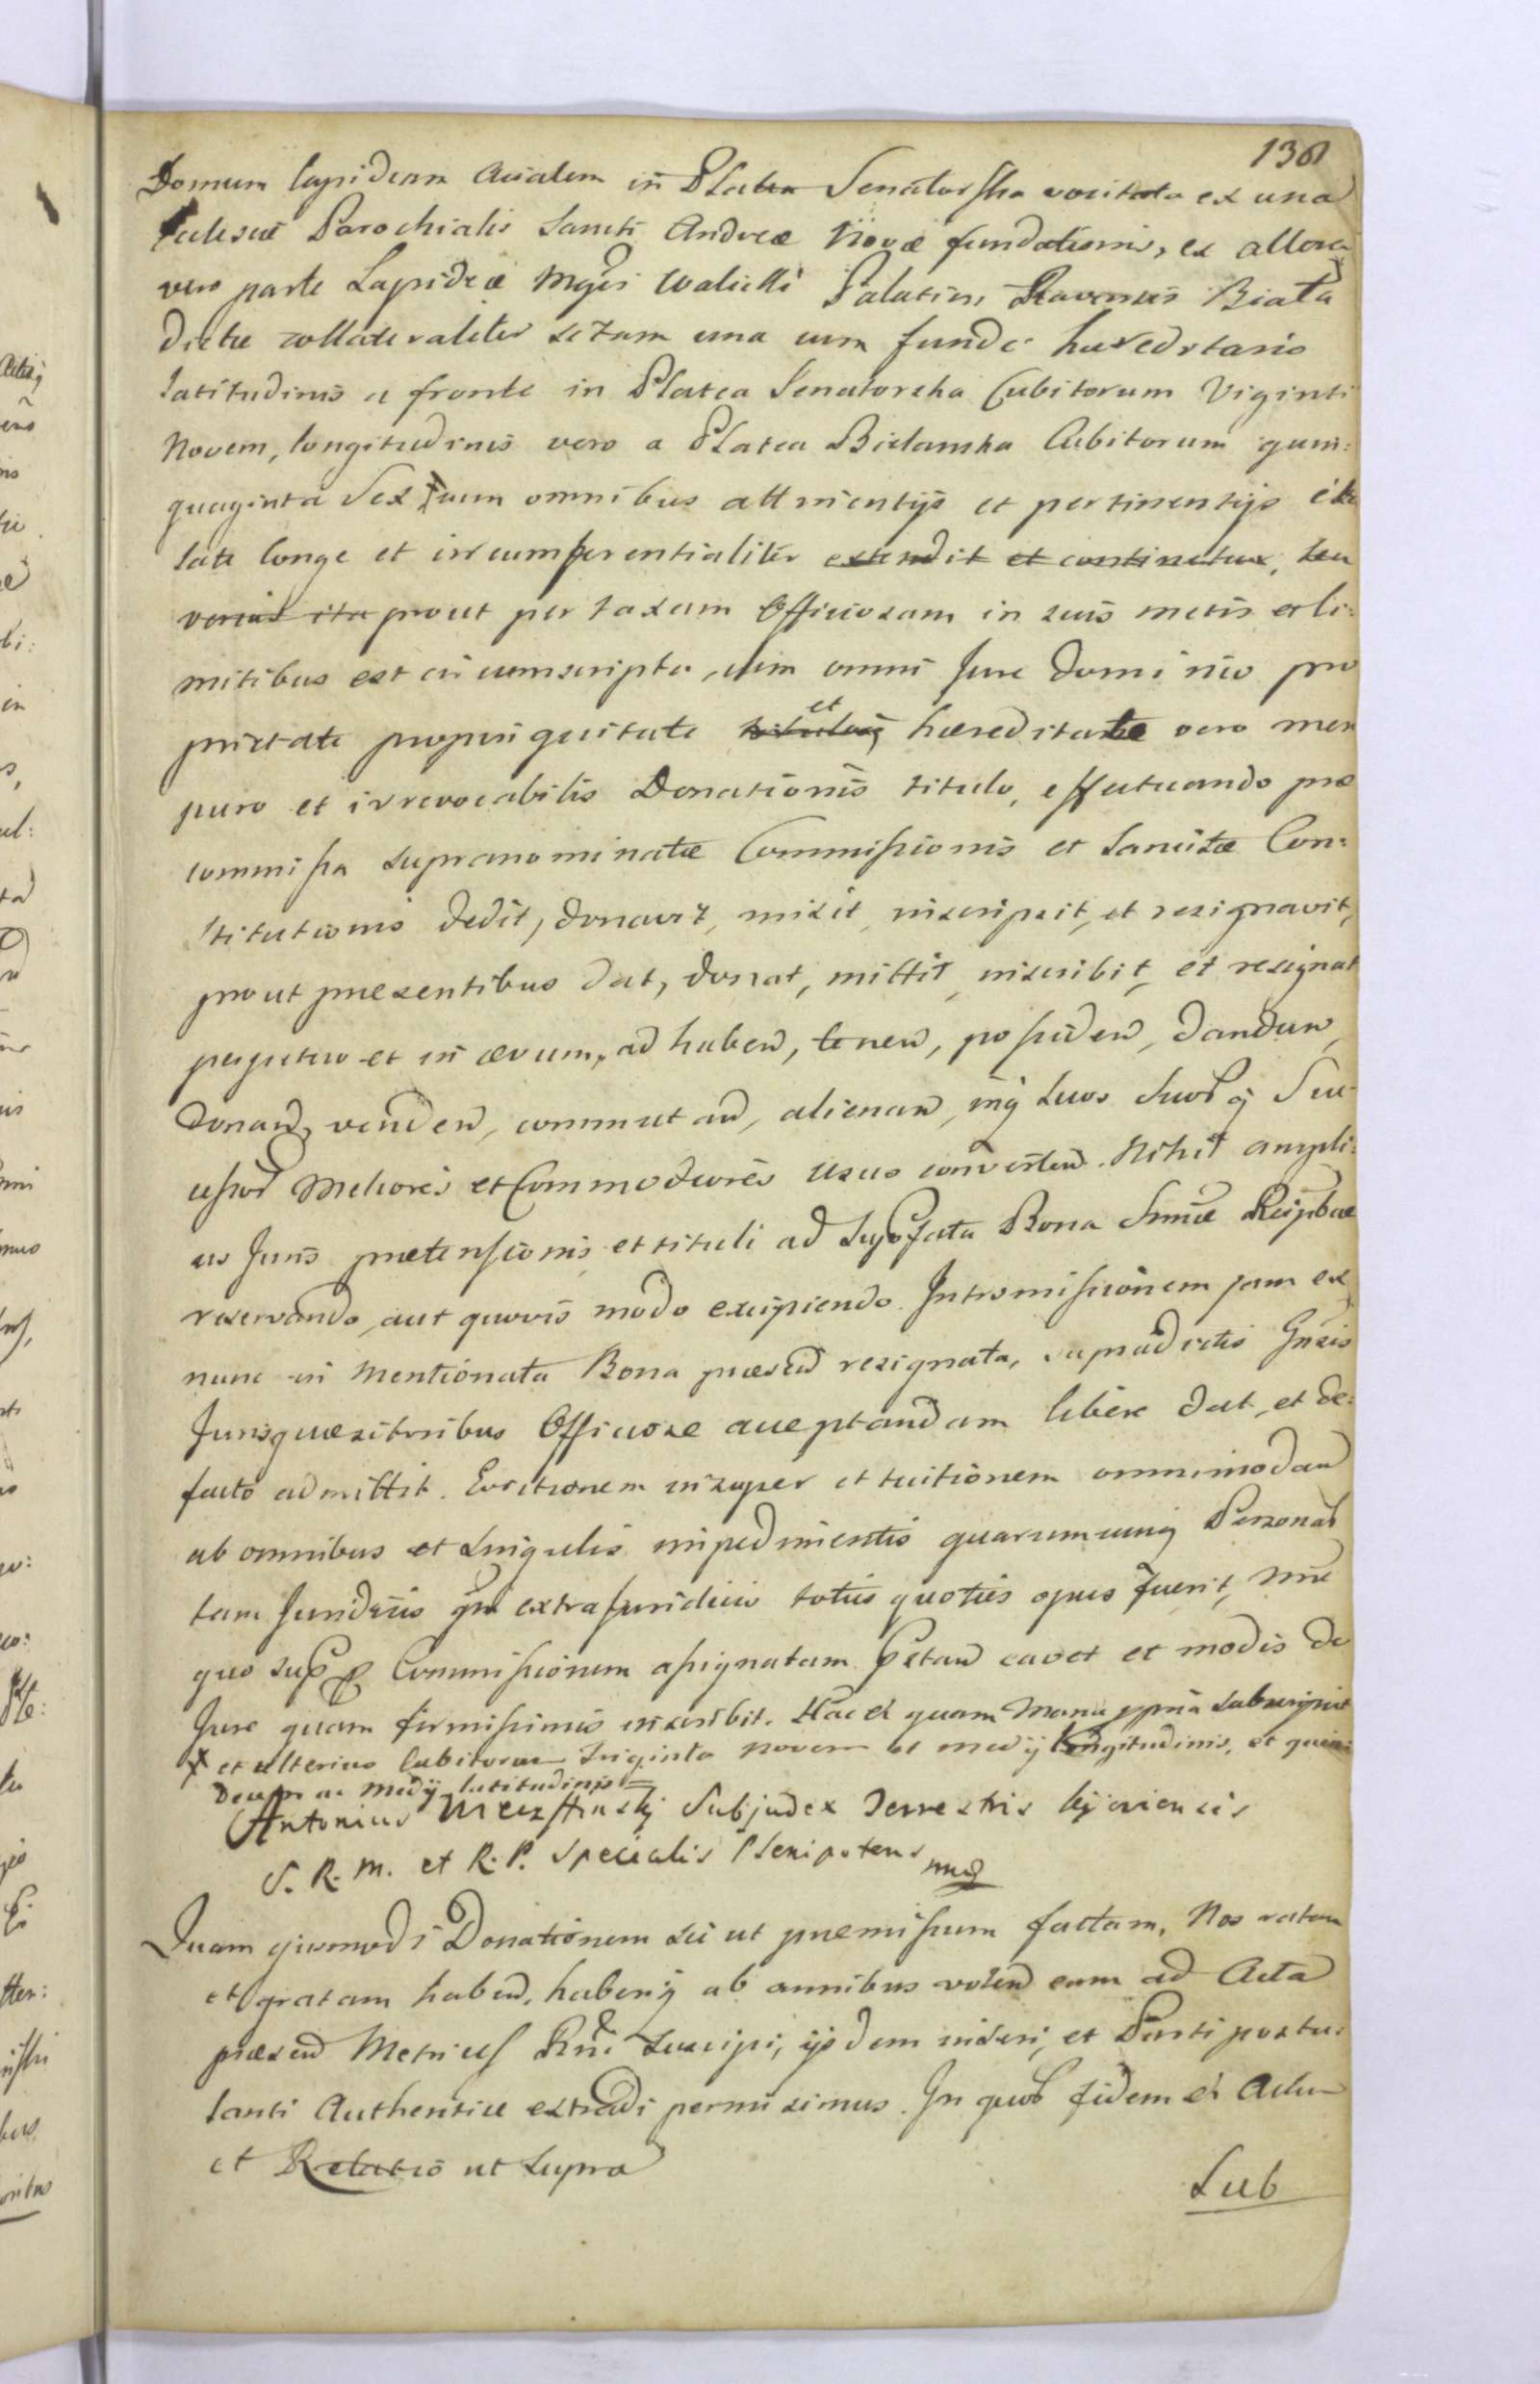 138
Domum lapideam Acialem in Platea Senatorska vocitata ex una
Eclesiæ Parochialis Sancti Andreæ Novæ fundationis, ex altera
vero parte Lapideæ Mgci Walicki Palatini Ravensis Biała
dictæ collateraliter sitam una cum fundo hæreditario
latitudinis a fronte in Platea Senatorska Cubitorum Viginti
Novem, longitudinis vero a Platea Bielanska Cubitorum quin:
quaginta Sex cum omnibus attinentijs et pertinentijs
late longe et circumferentialiter extendit et continetur, seu
verius ita prout per taxam Officiosam in suis metis et li:
mitibus est circumscripta, cum omni Jure dominio pro
prietate propinquitate et hæreditate vero mer
puro et irrevocabilis Donationis titulo, effectuando præ
commissa supranominatæ Commissionis et Sancitæ Con:
stitutionis dedit, donavit, misit, inscripsit, et resignavit,
prout præsentibus dat, donat, mittit, inscribit, et resignat
perpetuo et in ævum, ad habend, tenend, possidend, dandum,
donand, vendend, commutand, alienand, inq suos Suorq Suc
cessor Meliores et Commodiores usus convertend. Nihil ampli:
us Juris prætensionis et tituli ad Bona Reipbcæ
reservando, aut quovis modo excipiendo. Intromissionem jam ex
nunc in Mentionata Bona præsend resignata, supradictis Gnsis
Jurisquæsitoribus Officiose acceptandam libere dat, et de:
facto admittit. Evictionem insuper et tuitionem omnimodam
ab omnibus et Singulis impedimentis quarumcunq Personar
tam Juridicis extrajuridicis toties quoties opus fuerit,
quo Commissionem assignatam cavet et modis de
Jure quam firmissimis inscribit. Manu ppria subscripsit
X et ulterius Cubitorum Triginta novem et medij longitudinis, et quin:
Decem ac Medij latitudinis =
Antonius Subjudex Terrestris Kijoviensis
S. R. M. et R. P. Specialis Plenipotens mp
Quam ejusmodi Donationem sic ut præmissum factam, Nos ratam
et gratam habend, haberiq ab omnibus volend eam ad Acta
præsend Metrices Rni Suscipi, ijsdem inseri, et Parti postu:
lanti Authentice extradi permisimus. In quor fidem et Actum
et Relatio ut Supra
Sub